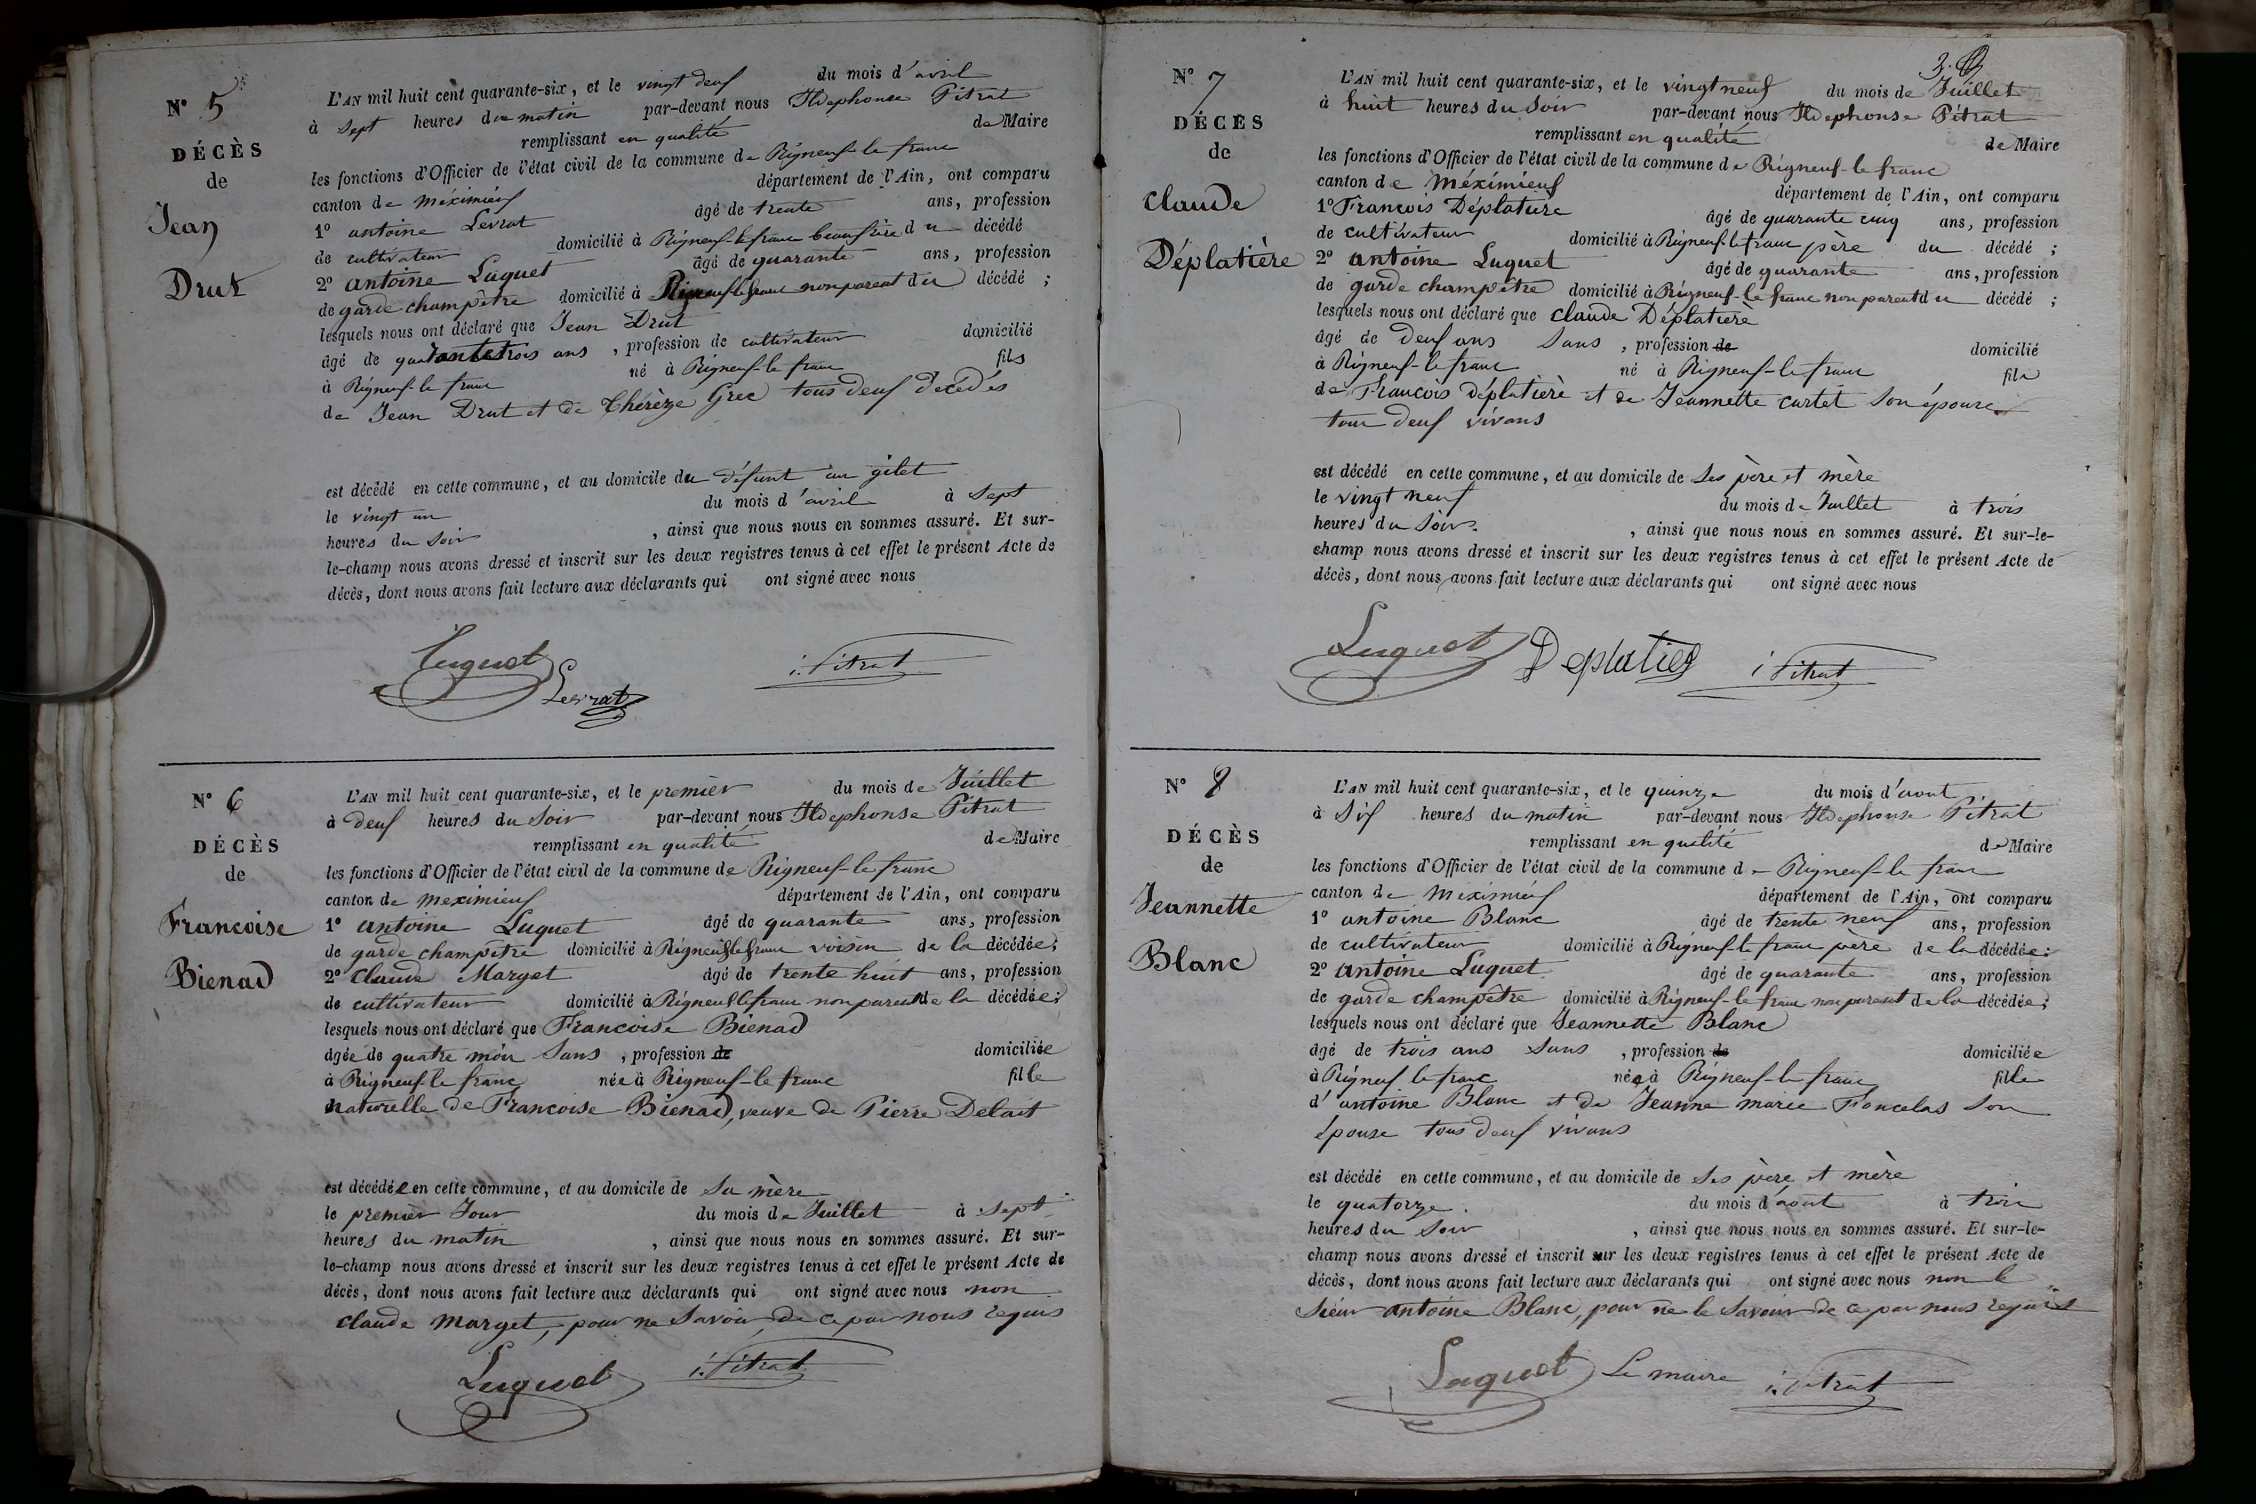 N° 5
DÉCÈS
de
Jean
Drut
L'AN mil huit cent quarante-six, et le vingt deux du mois d'avril
à sept heures du matin par-devant nous Ildephonse Pitrat
remplissant en qualité de Maire
les fonctions d'Officier de l'état civil de la commune de Rigneux-le-franc
canton de méximieux département de l'Ain, ont comparu
1° antoine Levrat âgé de trente ans, profession
de cultivateur domicilié à Rigneux-le-franc beaufrère du décédé
2° antoine Luquet âgé de quarante ans, profession
de garde champêtre domicilié à Rigneux-le-franc non parent du décédé ;
lesquels nous ont déclaré que Jean Drut
âgé de quarante trois ans , profession de cultivateur domicilié
à Rigneux-le franc né à Rigneux-le franc fils
de Jean Drut et de Thérèze Grec tous deux décédés
est décédé en cette commune, et au domicile du défunt au gilet
le vingt un du mois d'avril à sept
heures du soir , ainsi que nous nous en sommes assuré. Et sur-
le-champ nous avons dressé et inscrit sur les deux registres tenus à cet effet le présent Acte de
décès, dont nous avons fait lecture aux déclarants qui ont signé avec nous
Luquet
Levrat
i. Pitrat
N° 6
DÉCÈS
de
Francoise
Bienad
L'AN mil huit cent quarante-six, et le premier du mois de Juillet
à deux heures du soir par-devant nous Ildephonse Pitrat
remplissant en qualité de Maire
les fonctions d'Officier de l'état civil de la commune de Rigneux-le-franc
canton de meximieux département de l'Ain, ont comparu
1° antoine Luquet âgé de quarante ans, profession
de garde champêtre domicilié à Rigneux le franc voisin de la décédée;
2° Claude Marget âgé de trente huit ans, profession
de cultivateur domicilié à Rigneux le franc non parent de la décédée;
lesquels nous ont déclaré que Francoise Bienad
âgée de quatre mois sans , profession de domiciliée
à Rigneux-le franc née à Rigneux-le franc fille
naturelle de Francoise Bienad, veuve de Pierre Delait
est décédée en cette commune, et au domicile de sa mère
le premier Jour du mois de Juillet à sept
heures du matin , ainsi que nous nous en sommes assuré. Et sur-
le-champ nous avons dressé et inscrit sur les deux registres tenus à cet effet le présent Acte de
décès, dont nous avons fait lecture aux déclarants qui ont signé avec nous non
claude marget, pour ne savoir, de ce par nous requis
Luquet
i. Pitrat
N° 7
DÉCÈS
de
Claude
Déplatière
L'AN mil huit cent quarante-six, et le vingt neuf du mois de Juillet
à huit heures du soir par-devant nous Ildephonse Pitrat
remplissant en qualité de Maire
les fonctions d'Officier de l'état civil de la commune de Rigneux-le-franc
canton de méximieux département de l'Ain, ont comparu
1° François Déplatière âgé de quarante cinq ans, profession
de cultivateur domicilié à Rigneux-le franc père du décédé ;
2° antoine Luquet âgé de quarante ans, profession
de garde champêtre domicilié à Rigneux-le franc non parent du décédé ;
lesquels nous ont déclaré que claude Déplatière
âgé de deux ans sans , profession de domicilié
à Rigneux-le franc né à Rigneux-le franc fils
de François Déplatière et de Jeannette cartet son épouse
tous deux vivans
est décédé en cette commune, et au domicile de ses père et mère
le vingt neuf du mois de Juillet à trois
heures du soir , ainsi que nous nous en sommes assuré. Et sur-le-
champ nous avons dressé et inscrit sur les deux registres tenus à cet effet le présent Acte de
décès, dont nous avons fait lecture aux déclarants qui ont signé avec nous
Luquet
i Pitrat
N° 8
DÉCÈS
de
Jeannette
Blanc
L'AN mil huit cent quarante-six, et le quinze du mois d'aout
à Six heures du matin par-devant nous Ildephonse Pitrat
remplissant en qualité de Maire
les fonctions d'Officier de l'état civil de la commune de Rigneux-le franc
canton de méximieux département de l'Ain, ont comparu
1° antoine Blanc âgé de trente neuf ans, profession
de cultivateur domicilié à Rigneux-le franc père de la décédée;
2° antoine Luquet âgé de quarante ans, profession
de garde champêtre domicilié à Rigneux-le franc non parent de la décédée;
lesquels nous ont déclaré que Jeannette Blanc
âgé de trois ans sans , profession de domiciliée
à Rigneux le franc née à Rigneux-le franc fille
d'antoine Blanc et de Jeanne marie Foncelas son
épouse tous deux vivans
est décédé en cette commune, et au domicile de ses père et mère
le quatorze du mois d'aout à trois
heures du soir , ainsi que nous nous en sommes assuré. Et sur-le-
champ nous avons dressé et inscrit sur les deux registres tenus à cet effet le présent Acte de
décès, dont nous avons fait lecture aux déclarants qui ont signé avec nous non le
sieur antoine Blanc, pour ne le savoir de ce par nous requis
Luquet Le maire i. Pitrat